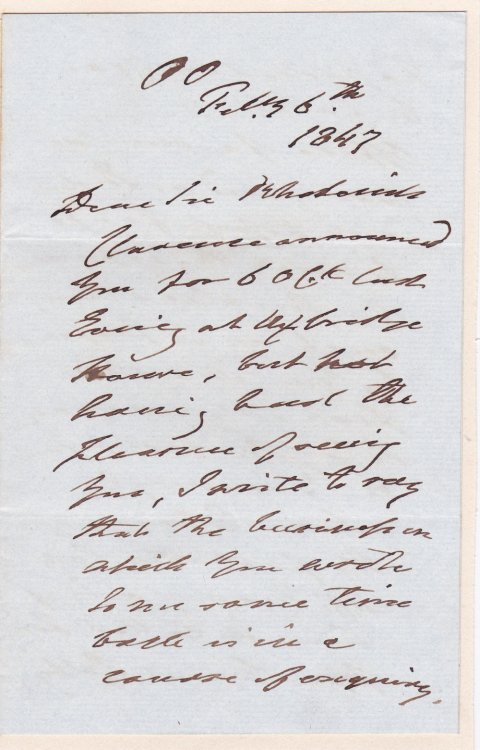 OO
Feb.y 6.th
1847
Dear Sir Frederick
Clarence announced
You for 6 OC.k last
Evening at Uxbridge
House, but not
having had the
pleasure of seeing
You, I write to say
that the business on
which You wrote
to me some time
back is in a
course of enquiry.